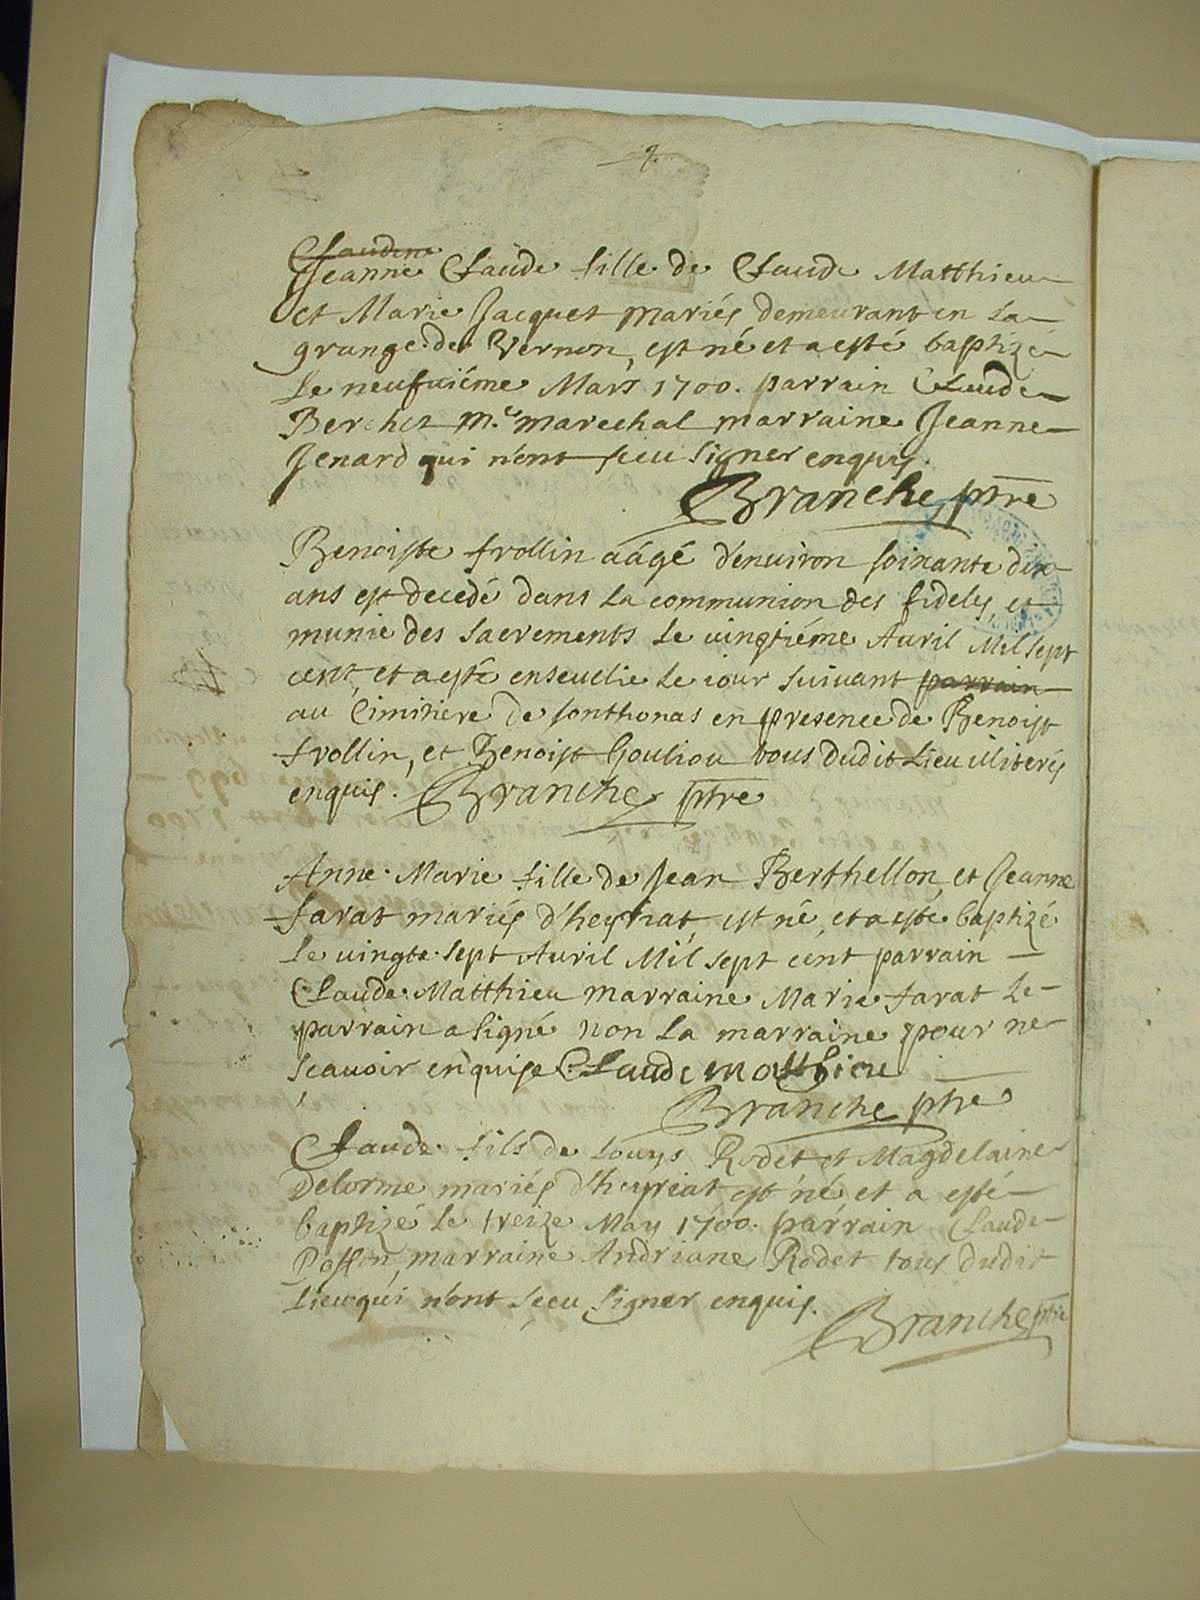 2.
Claudine
Jeanne Claude fille de Claude Matthieu
et Marie Jacquet mariés demeurant en la
grange de Vernon, est né et a esté baptizé
le neufuiéme Mars 1700. parrain Claude
Berchet m.e marechal marraine Jeanne
Jenard qui n'ont sceu signer enquis.
Branche, ptre
Benoiste frollin aâgé d'enuiron soixante dix
ans est decedé dans la communion des fidels et
munie des sacrements le vingtiéme Auril Mil sept
cent, et a esté enseuelie le iour suiuant parrain
au Cimitiere de sonthonas en presence de Benoist
frollin, et Benoist Gouliou tous dudit lieu iliterés
enquis. Branche ptre
Anne Marie fille de Jean Berthellon, et Jeanne
farat mariés d'heyriat, est né, et a esté baptizé
le vingte sept Auril Mil sept cent parrain
Claude Matthieu marraine Marie farat le
parrain a signé non la marraine pour ne
scauoir enquise Claude matthieu
Branche ptre
Claude fils de Louys Rodet et Magdelaine
Delorme mariés d'heyriat est né et a esté
baptizé le treize May 1700. parrain Claude
Posson, marraine Andriane Rodet tous dudit
lieu qui n'ont sceu signer enquis.
Branche ptre